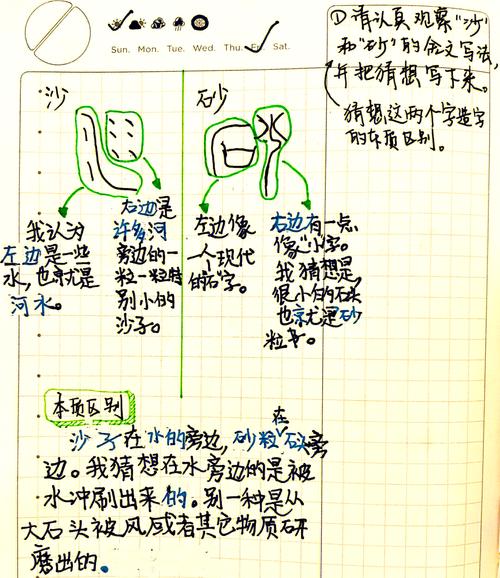 Sun. Mon. Tue. Wed. Thu. Fri. Sat.
①请认真观察“沙”
和“砂”的金文写法，
并把猜想写下来。
猜想这两个字造字
的本质区别。
沙
砂
我认为
左边是一些
水，也就是
河水。
右边是
许多河
旁边的一
粒一粒特
别小的
沙子。
左边像
一个现代
的“石”字。
右边有一点
像“小”字。
我猜想是
很小的石头
也就是砂
粒子。
本质区别
沙子在水的旁边，砂粒在石头旁
边。我猜想在水旁边的是被
水冲刷出来的。别一种是从
大石头被风或者其它物质研
磨出的。